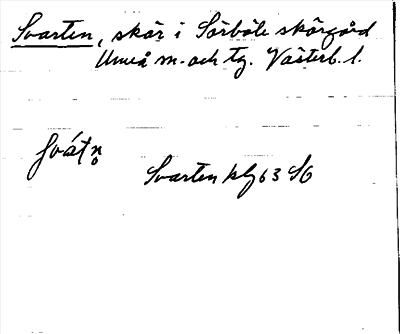 Svarten, skär i Sörböle skärgård
Umeå m. och tg. Västerb. l.
Svarten klg 63 SO